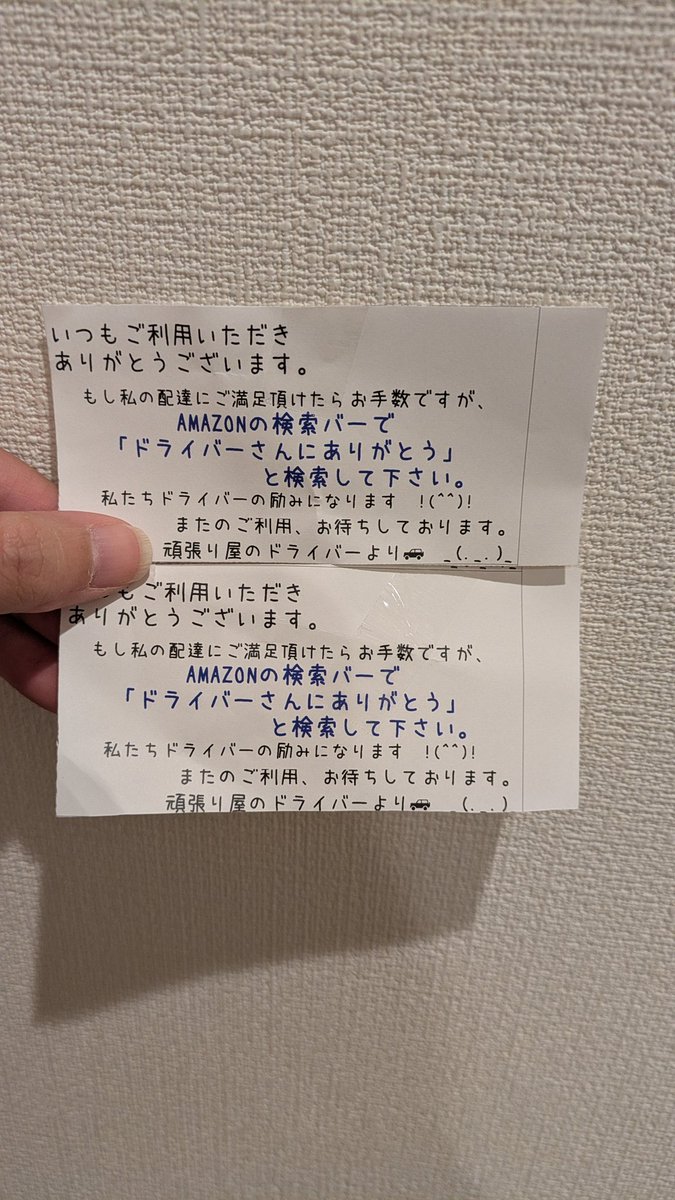 いつもご利用いただき
ありがとうございます。
もし私の配達にご満足頂けたらお手数ですが、
AMAZONの検索バーで
「ドライバーさんにありがとう」
と検索して下さい。
私たちドライバーの励みになります !(^^)!
またのご利用、お待ちしております。
頑張り屋のドライバーより🚗 _(._.)_
もご利用いただき
ありがとうございます。
もし私の配達にご満足頂けたらお手数ですが、
AMAZONの検索バーで
「ドライバーさんにありがとう」
と検索して下さい。
私たちドライバーの励みになります !(^^)!
またのご利用、お待ちしております。
頑張り屋のドライバーより🚗 _(._.)